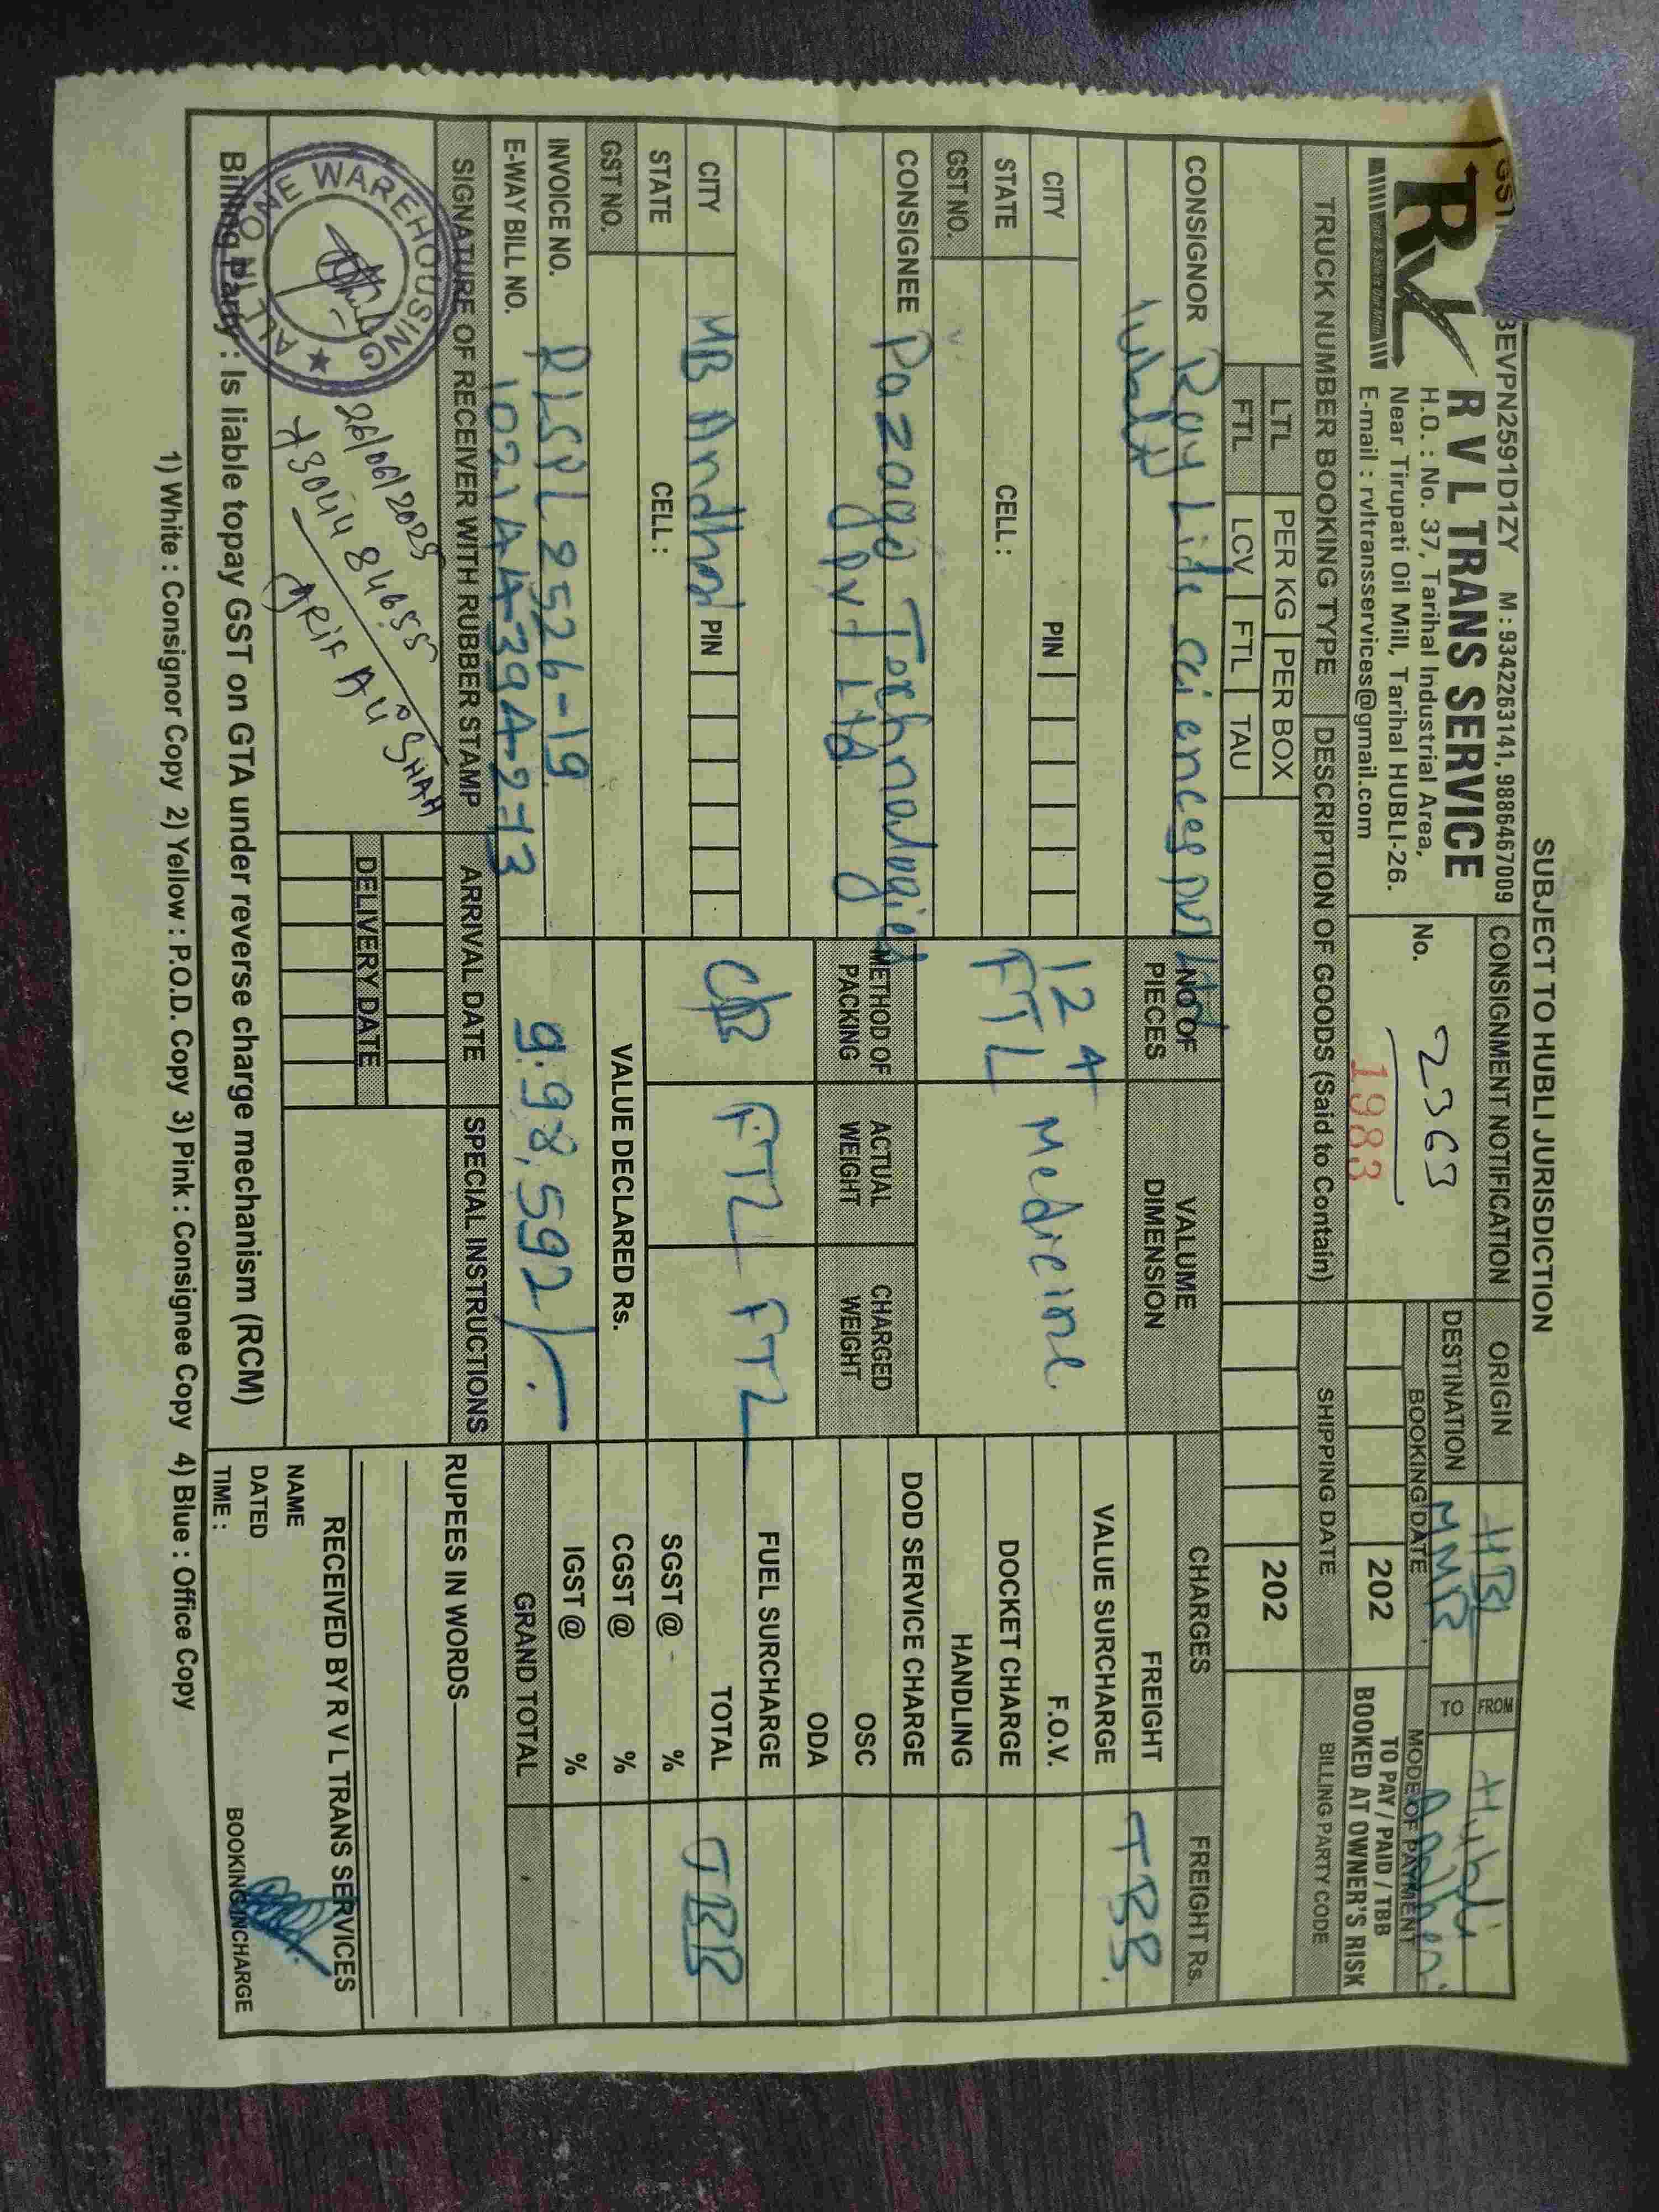 SUBJECT TO HUBLI JURISDICTION
3EVPN2591D1ZY M : 9342263141, 9886467009
RVL
R V L TRANS SERVICE
H.O. : No. 37, Tarihal Industrial Area,
Near Tirupati Oil Mill, Tarihal HUBLI-26.
E-mail : rvltransservices@gmail.com
CONSIGNMENT NOTIFICATION
No. 2363
1983
ORIGIN HBL FROM Hubli
DESTINATION TO
BOOKING DATE MODE OF PAYMENT
202 TO PAY / PAID / TBB
BOOKED AT OWNER'S RISK
TRUCK NUMBER BOOKING TYPE DESCRIPTION OF GOODS (Said to Contain) SHIPPING DATE BILLING PARTY CODE
LTL PER KG PER BOX
FTL LCV FTL TAU
202
CONSIGNOR Ray Life sciences pvt Ltd
Hubli
CITY PIN
STATE CELL :
GST NO.
CONSIGNEE Pazago Technologies
Pvt Ltd
CITY PIN
STATE CELL :
GST NO.
INVOICE NO. RLSPL 2526-19
E-WAY BILL NO.
NO OF PIECES VALUME DIMENSION
124 Medicine
FTL
METHOD OF PACKING ACTUAL WEIGHT CHARGED WEIGHT
CB FTL FTL
VALUE DECLARED Rs.
9,98,592/-
CHARGES FREIGHT Rs.
FREIGHT TBB
VALUE SURCHARGE
F.O.V.
DOCKET CHARGE
HANDLING
DOD SERVICE CHARGE
OSC
ODA
FUEL SURCHARGE
TOTAL TBB
SGST @ %
CGST @ %
IGST @ %
GRAND TOTAL
SIGNATURE OF RECEIVER WITH RUBBER STAMP ARRIVAL DATE SPECIAL INSTRUCTIONS
DELIVERY DATE
ALL IN ONE WAREHOUSING
26/06/2025
7304484655
ARIF ALI SHAH
RUPEES IN WORDS
RECEIVED BY R V L TRANS SERVICES
NAME
DATED
TIME :
BOOKING INCHARGE
Billing Party : Is liable topay GST on GTA under reverse charge mechanism (RCM)
1) White : Consignor Copy 2) Yellow : P.O.D. Copy 3) Pink : Consignee Copy 4) Blue : Office Copy